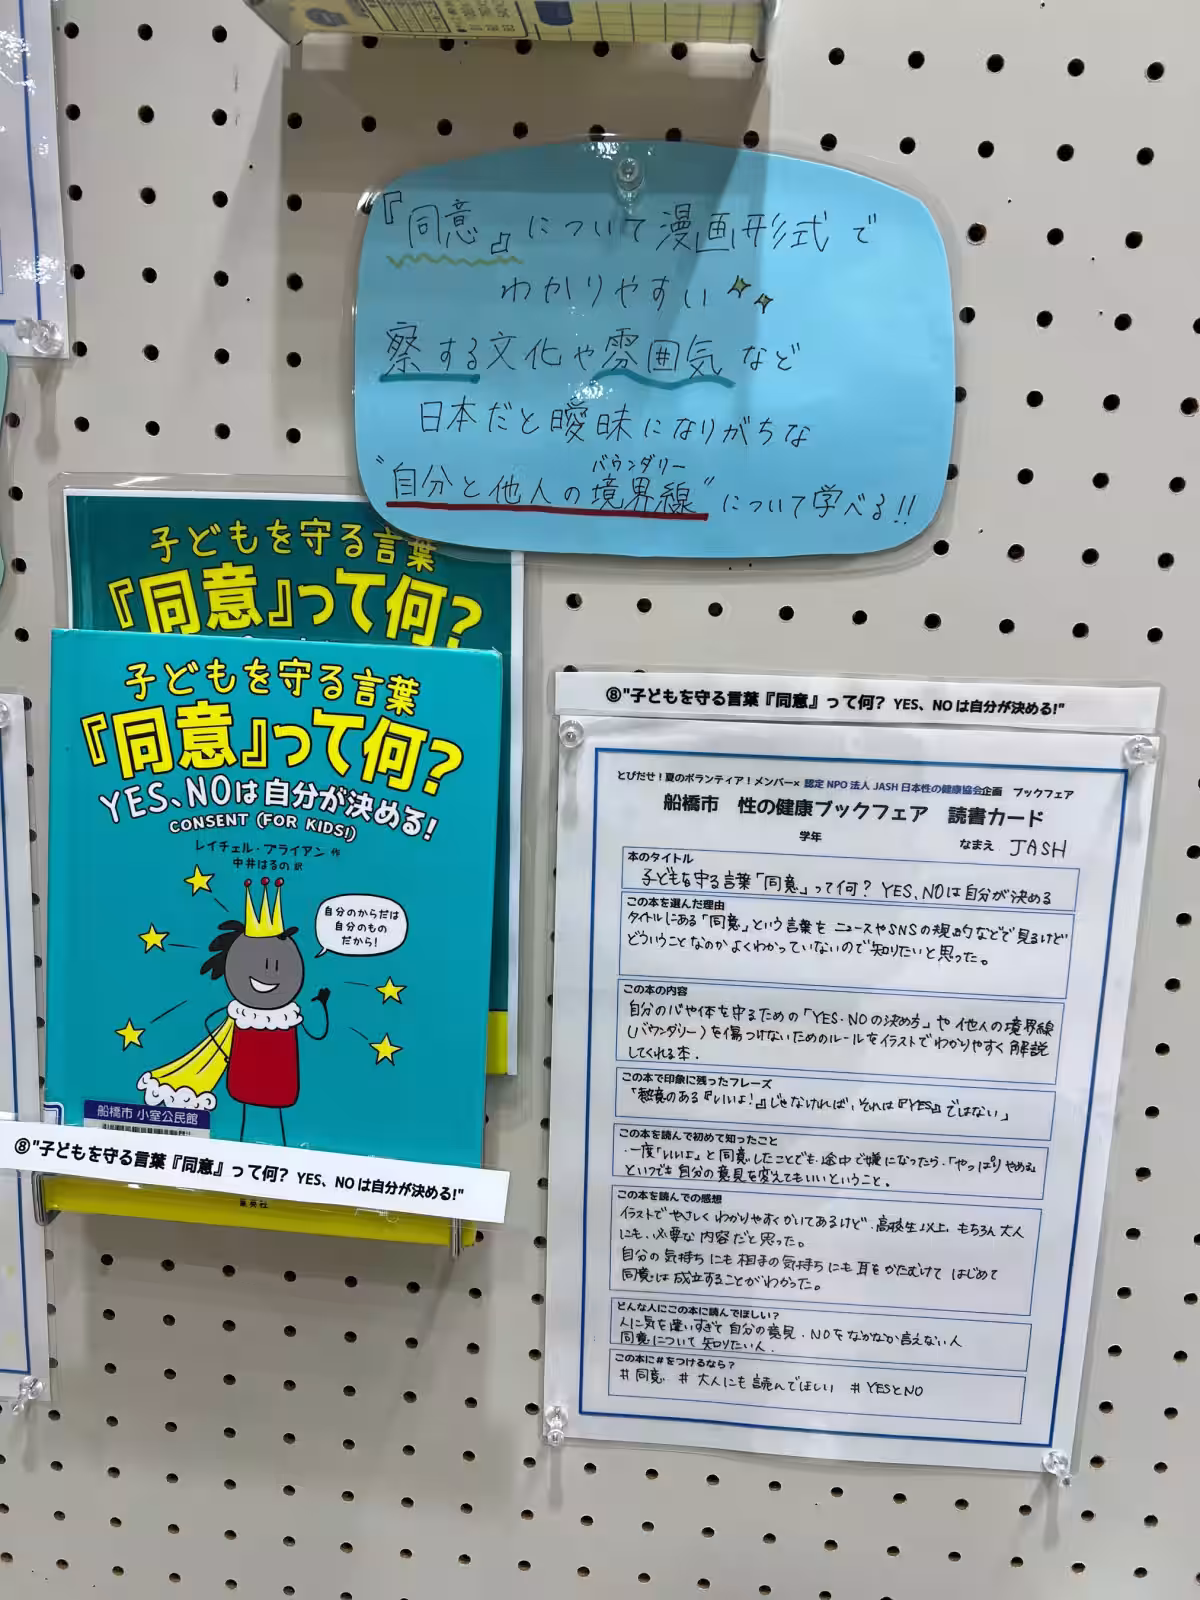 『同意』について漫画形式で
わかりやすい
察する文化や雰囲気など
日本だと曖昧になりがちな
バウンダリー
"自分と他人の境界線"について学べる!!
子どもを守る言葉
『同意』って何?
子どもを守る言葉
『同意』って何?
YES、NOは自分が決める!
CONSENT (FOR KIDS!)
レイチェル・ブライアン 作
中井はるの 訳
自分のからだは
自分のもの
だから!
船橋市 小室公民館
⑧"子どもを守る言葉『同意』って何? YES、NOは自分が決める!"
集英社
⑧"子どもを守る言葉『同意』って何? YES、NOは自分が決める!"
とびだせ!夏のボランティア!メンバー× 認定NPO法人JASH日本性の健康協会企画 ブックフェア
船橋市 性の健康ブックフェア 読書カード
学年 なまえ JASH
本のタイトル
子どもを守る言葉「同意」って何? YES、NOは自分が決める
この本を選んだ理由
タイトルにある「同意」という言葉を ニュースやSNSの規約などで見るけど
どういうことなのかよくわかっていないので知りたいと思った。
この本の内容
自分の心や体を守るための「YES・NOの決め方」や 他人の境界線
(バウンダリー)を傷つけないためのルールをイラストでわかりやすく解説
してくれる本.
この本で印象に残ったフレーズ
「熱意のある『いいよ!』じゃなければ、それは『YES』ではない」
この本を読んで初めて知ったこと
・一度「いいよ」と同意したことでも、途中で嫌になったら、「やっぱりやめる」
といつでも自分の意見を変えてもいいということ。
この本を読んでの感想
イラストでやさしくわかりやすくかいてあるけど、高校生以上、もちろん大人
にも、必要な内容だと思った。
自分の気持ちにも相手の気持ちにも耳をかたむけて はじめて
同意は成立することがわかった。
どんな人にこの本に読んでほしい?
人に気を遣いすぎて自分の意見、NOをなかなか言えない人
同意について知りたい人.
この本に#をつけるなら?
#同意 #大人にも読んでほしい #YESとNO